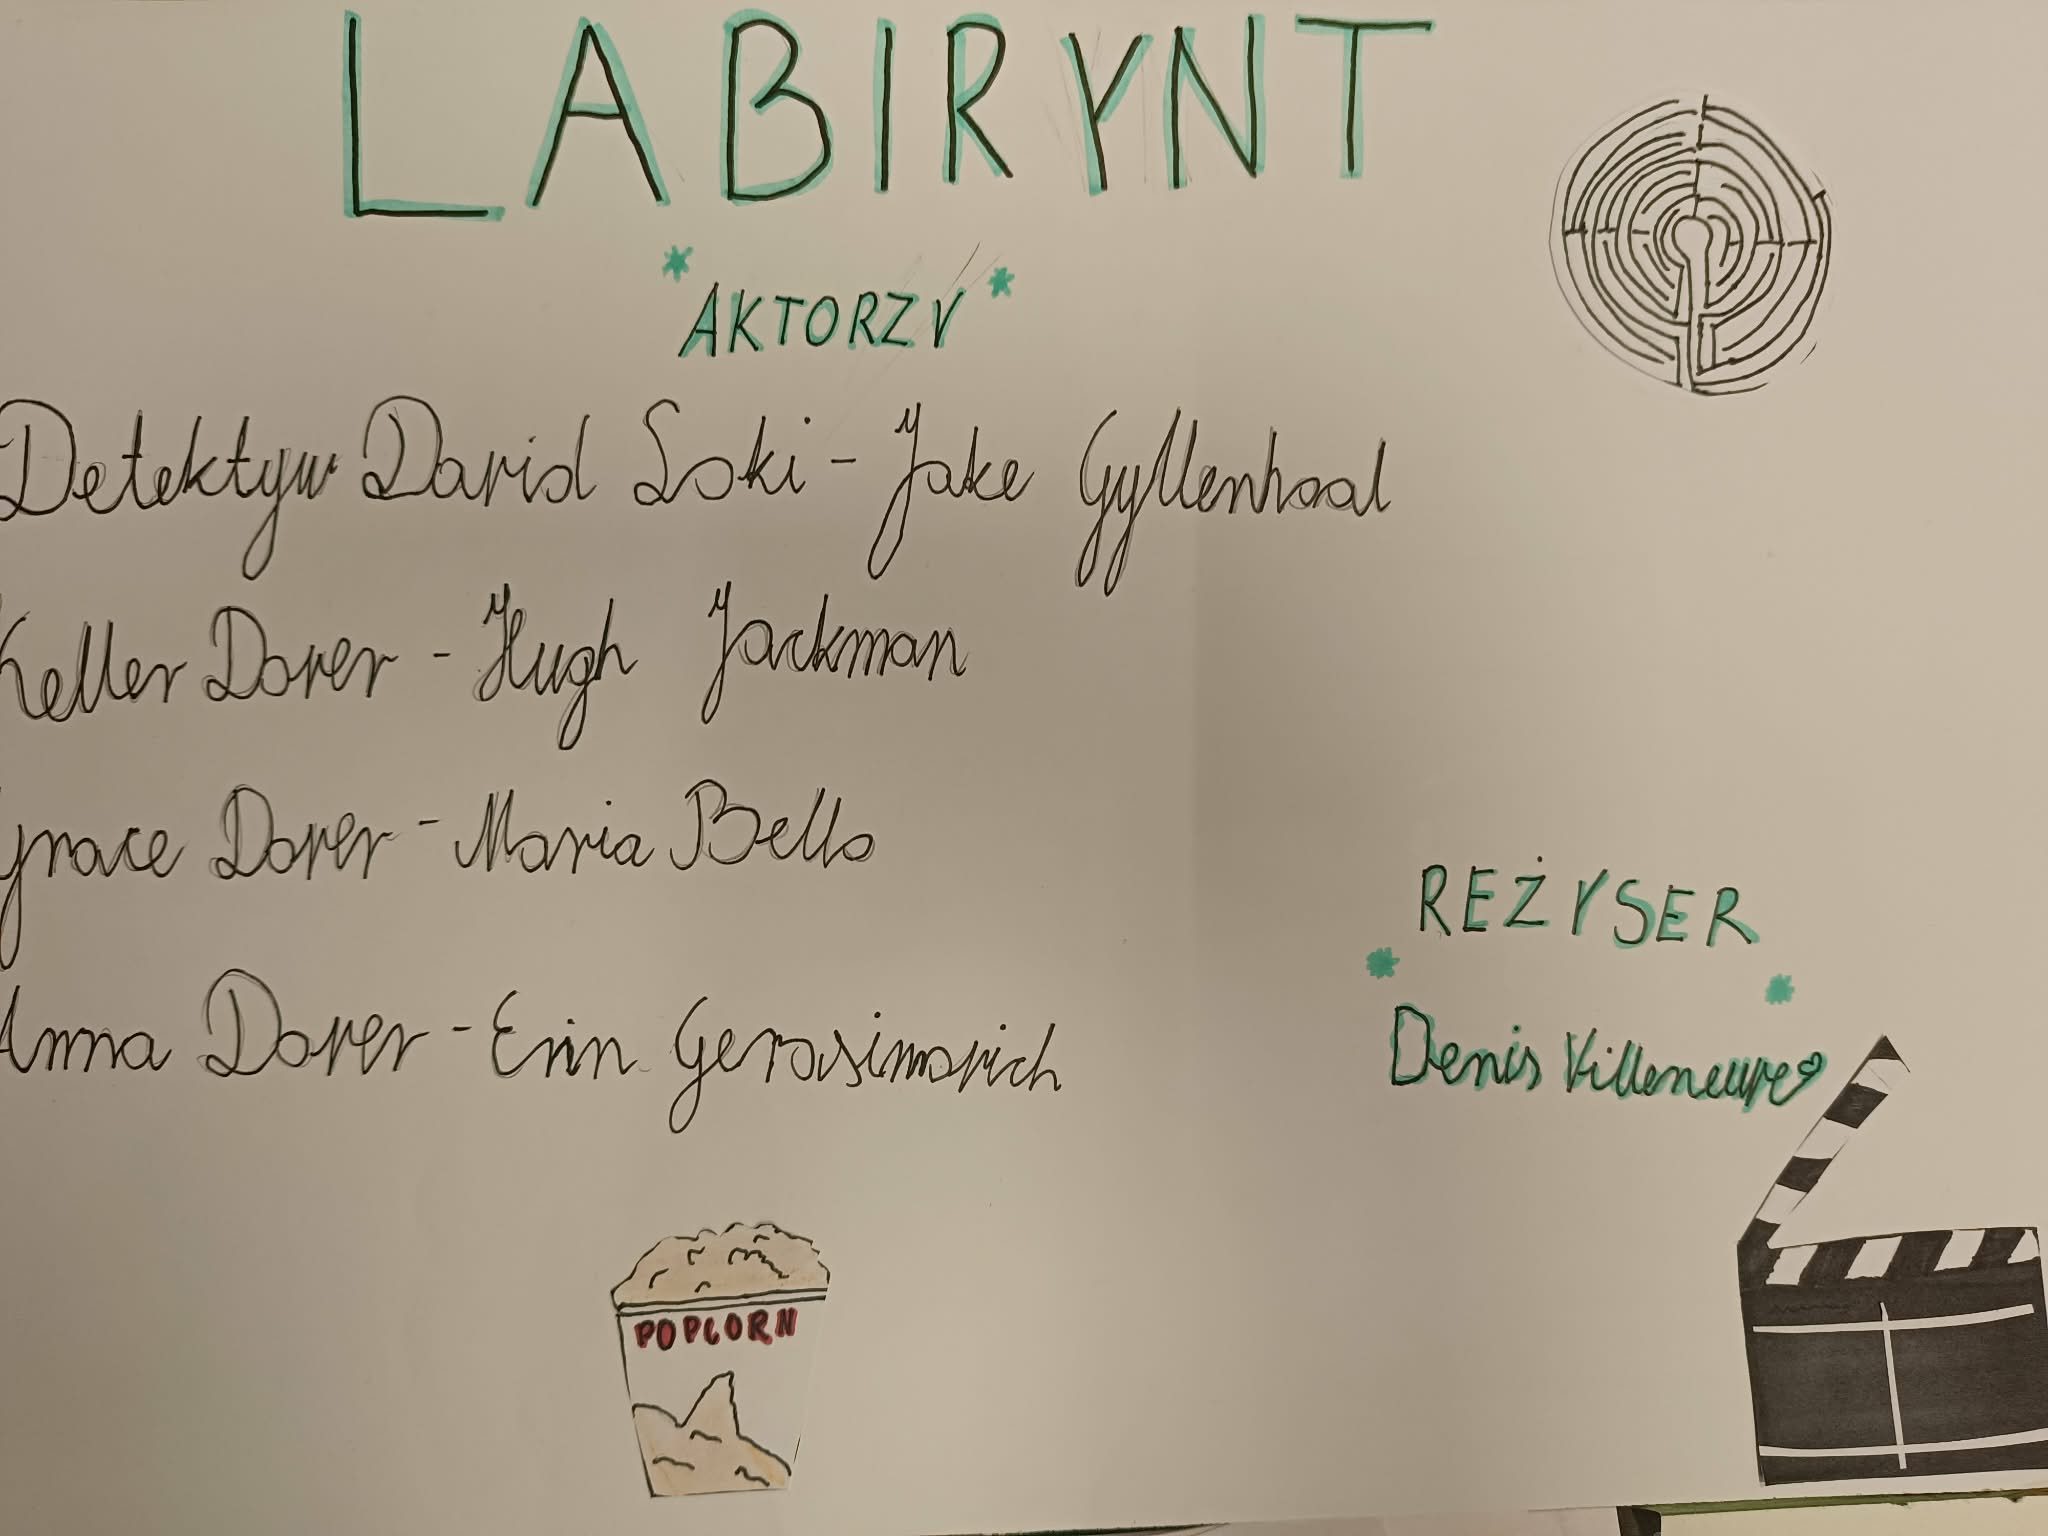 LABIRYNT
AKTORZY
Detektyw David Loki - Jake Gyllenhaal
Keller Dover - Hugh Jackman
Grace Dover - Maria Bello
Anna Dover - Erin Gerasimovich
REŻYSER
Denis Villeneuve
POPCORN